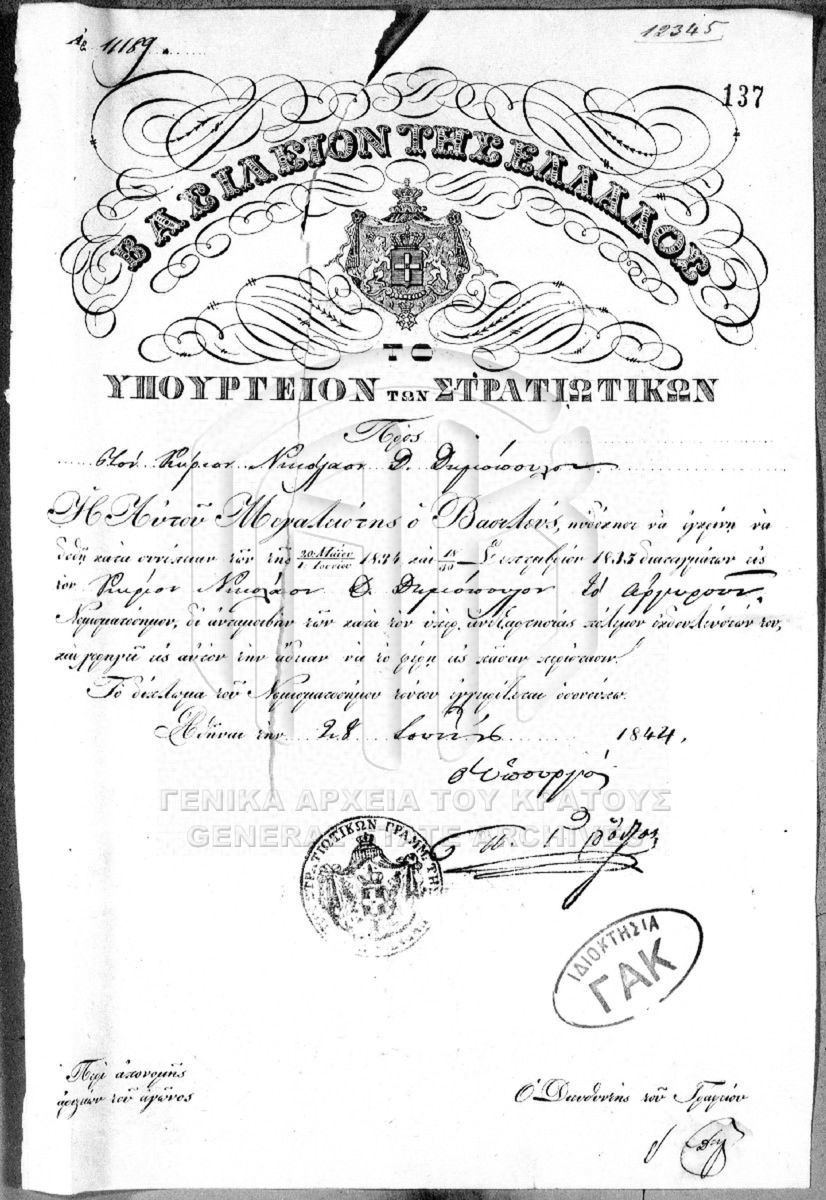 Ἀρ. 11189.
12345
137
ΒΑΣΙΛΕΙΟΝ ΤΗΣ ΕΛΛΑΔΟΣ
ΤΟ
ΥΠΟΥΡΓΕΙΟΝ ΤΩΝ ΣΤΡΑΤΙΩΤΙΚΩΝ
Πρὸς
τὸν Κύριον Νικόλαον Δ. Δημόπουλον
Ἡ Αὐτοῦ Μεγαλειότης ὁ Βασιλεύς, ηὐδόκησε νὰ ἐγκρίνῃ νὰ
δοθῇ κατὰ συνέπειαν τῶν τῆς 20 Μαΐου / 1 Ἰουνίου 1834 καὶ 18/30 Σεπτεμβρίου 1835 διαταγμάτων εἰς
τὸν Κύριον Νικόλαον Δ. Δημόπουλον τὸ Ἀργυροῦν
Νομισματόσημον, δι' ἀνταμοιβὴν τῶν κατὰ τὸν ὑπὲρ ἀνεξαρτησίας πόλεμον ἐκδουλεύσεών του,
καὶ χορηγεῖ εἰς αὐτὸν τὴν ἄδειαν νὰ τὸ φέρῃ εἰς πᾶσαν περίστασιν.
Τὸ δίπλωμα τοῦ Νομισματοσήμου τούτου ἐγχειρίζεται ὁσονούπω.
Ἀθῆναι τὴν 28 1844.
ὁ Ὑπουργός
ΓΕΝΙΚΑ ΑΡΧΕΙΑ ΤΟΥ ΚΡΑΤΟΥΣ
GENERAL STATE ARCHIVES
ΣΤΡΑΤΙΩΤΙΚΩΝ ΓΡΑΜΜ. ΤΗΣ
ΙΔΙΟΚΤΗΣΙΑ
ΓΑΚ
Περὶ ἀπονομῆς
ἀριστείων τοῦ ἀγῶνος
Ὁ Διευθυντὴς τοῦ Γραφείου